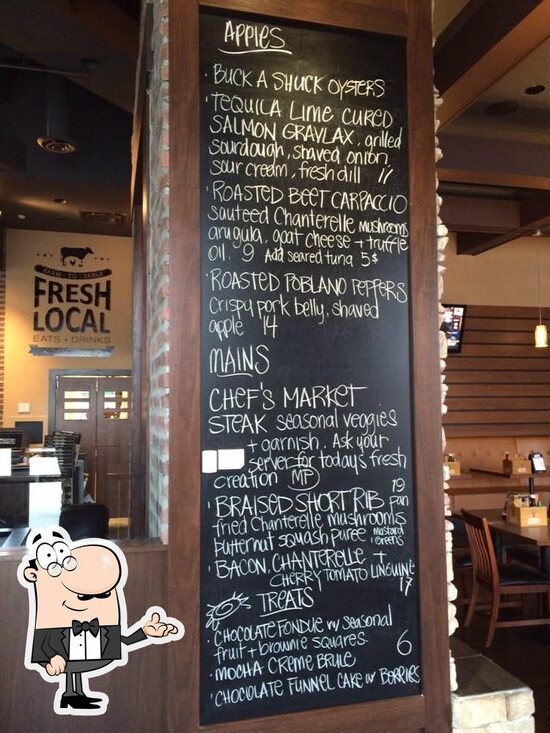 APPIES
· BUCK A SHUCK OYSTERS
· TEQUILA LIME CURED
SALMON GRAVLAX, grilled
sourdough, shaved onion,
sour cream, fresh dill 11
· ROASTED BEET CARPACCIO
sauteed Chanterelle mushrooms
arugula, goat cheese + truffle
oil. 9 Add seared tuna 5$
· ROASTED POBLANO PEPPERS
Crispy pork belly, shaved
apple 14
MAINS
CHEF'S MARKET
STEAK seasonal veggies
+ garnish. Ask your
server for today's fresh
creation MP
19
· BRAISED SHORT RIB pan
fried Chanterelle mushrooms
butternut squash puree mustard
greens
· BACON, CHANTERELLE +
CHERRY TOMATO LINGUINE
17
TREATS
· CHOCOLATE FONDUE w/ seasonal
fruit + brownie squares. 6
· MOCHA CREME BRULE
· CHOCOLATE FUNNEL CAKE w/ BERRIES
FARM-TO-TABLE
FRESH
LOCAL
EATS + DRINKS